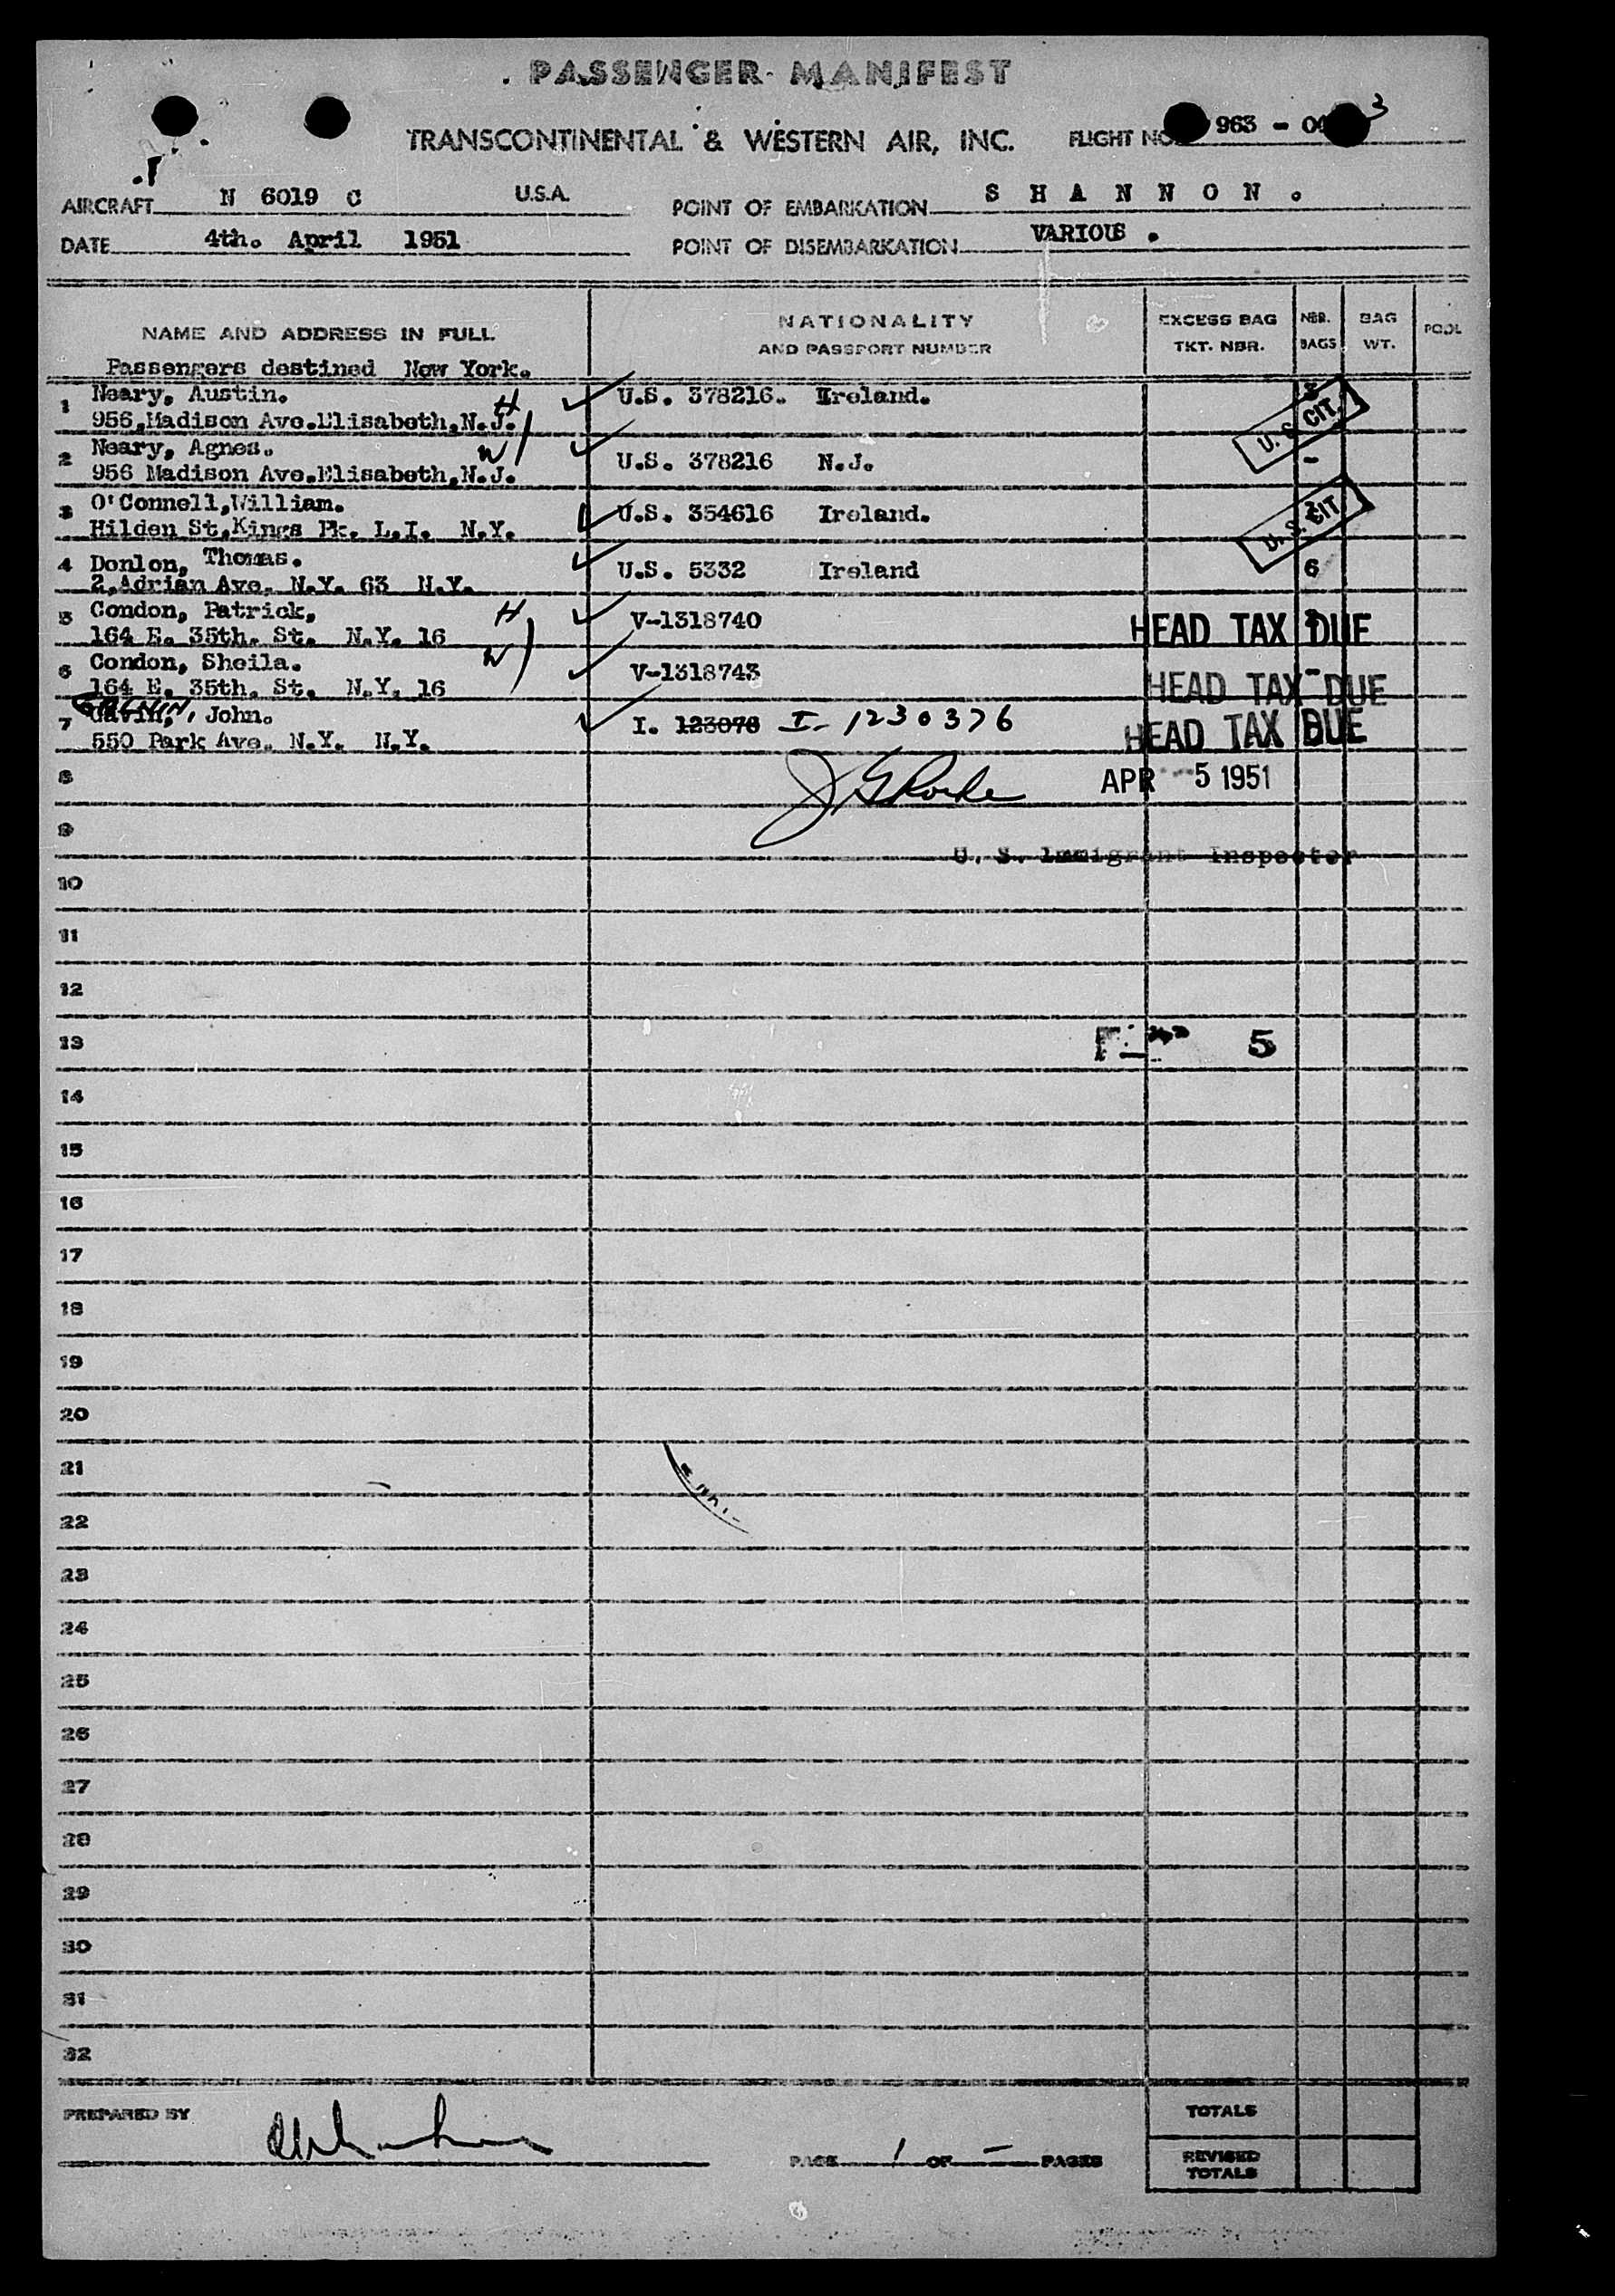 PASSENGER MANIFEST
TRANSCONTINENTAL & WESTERN AIR, INC. FLIGHT NO. 963 - 3
AIRCRAFT N 6019 C U.S.A. POINT OF EMBARKATION S H A N N O N .
DATE 4th. April 1951 POINT OF DISEMBARKATION VARIOUS .
NAME AND ADDRESS IN FULL NATIONALITY AND PASSPORT NUMBER EXCESS BAG TKT. NBR. NBR. BAGS BAG WT. POOL
Passengers destined New York.
1 Neary, Austin. H U.S. 378216. Ireland. U.S. CIT.
956,Madison Ave.Elisabeth,N.J.
2 Neary, Agnes. W U.S. 378216 N.J. -
956 Madison Ave.Elisabeth,N.J.
3 O'Connell,William. U.S. 354616 Ireland. U.S. CIT
Hilden St,Kings Pk. L.I. N.Y.
4 Donlon, Thomas. U.S. 5332 Ireland 6
2,Adrian Ave. N.Y. 63 N.Y.
5 Condon, Patrick, H V-1318740 HEAD TAX DUE
164 E. 35th. St. N.Y. 16
6 Condon, Sheila. W V-1318743 - HEAD TAX DUE
164 E. 35th. St. N.Y. 16
GALVIN
7 Gavin, John. I. 123076 I-1230376 HEAD TAX DUE
550 Park Ave. N.Y. N.Y.
8 APR -5 1951
9
U. S. Immigrant Inspector
10
11
12
13 5
14
15
16
17
18
19
20
21
22
23
24
25
26
27
28
29
30
31
32
PREPARED BY TOTALS
PAGE 1 OF - PAGES REVISED TOTALS